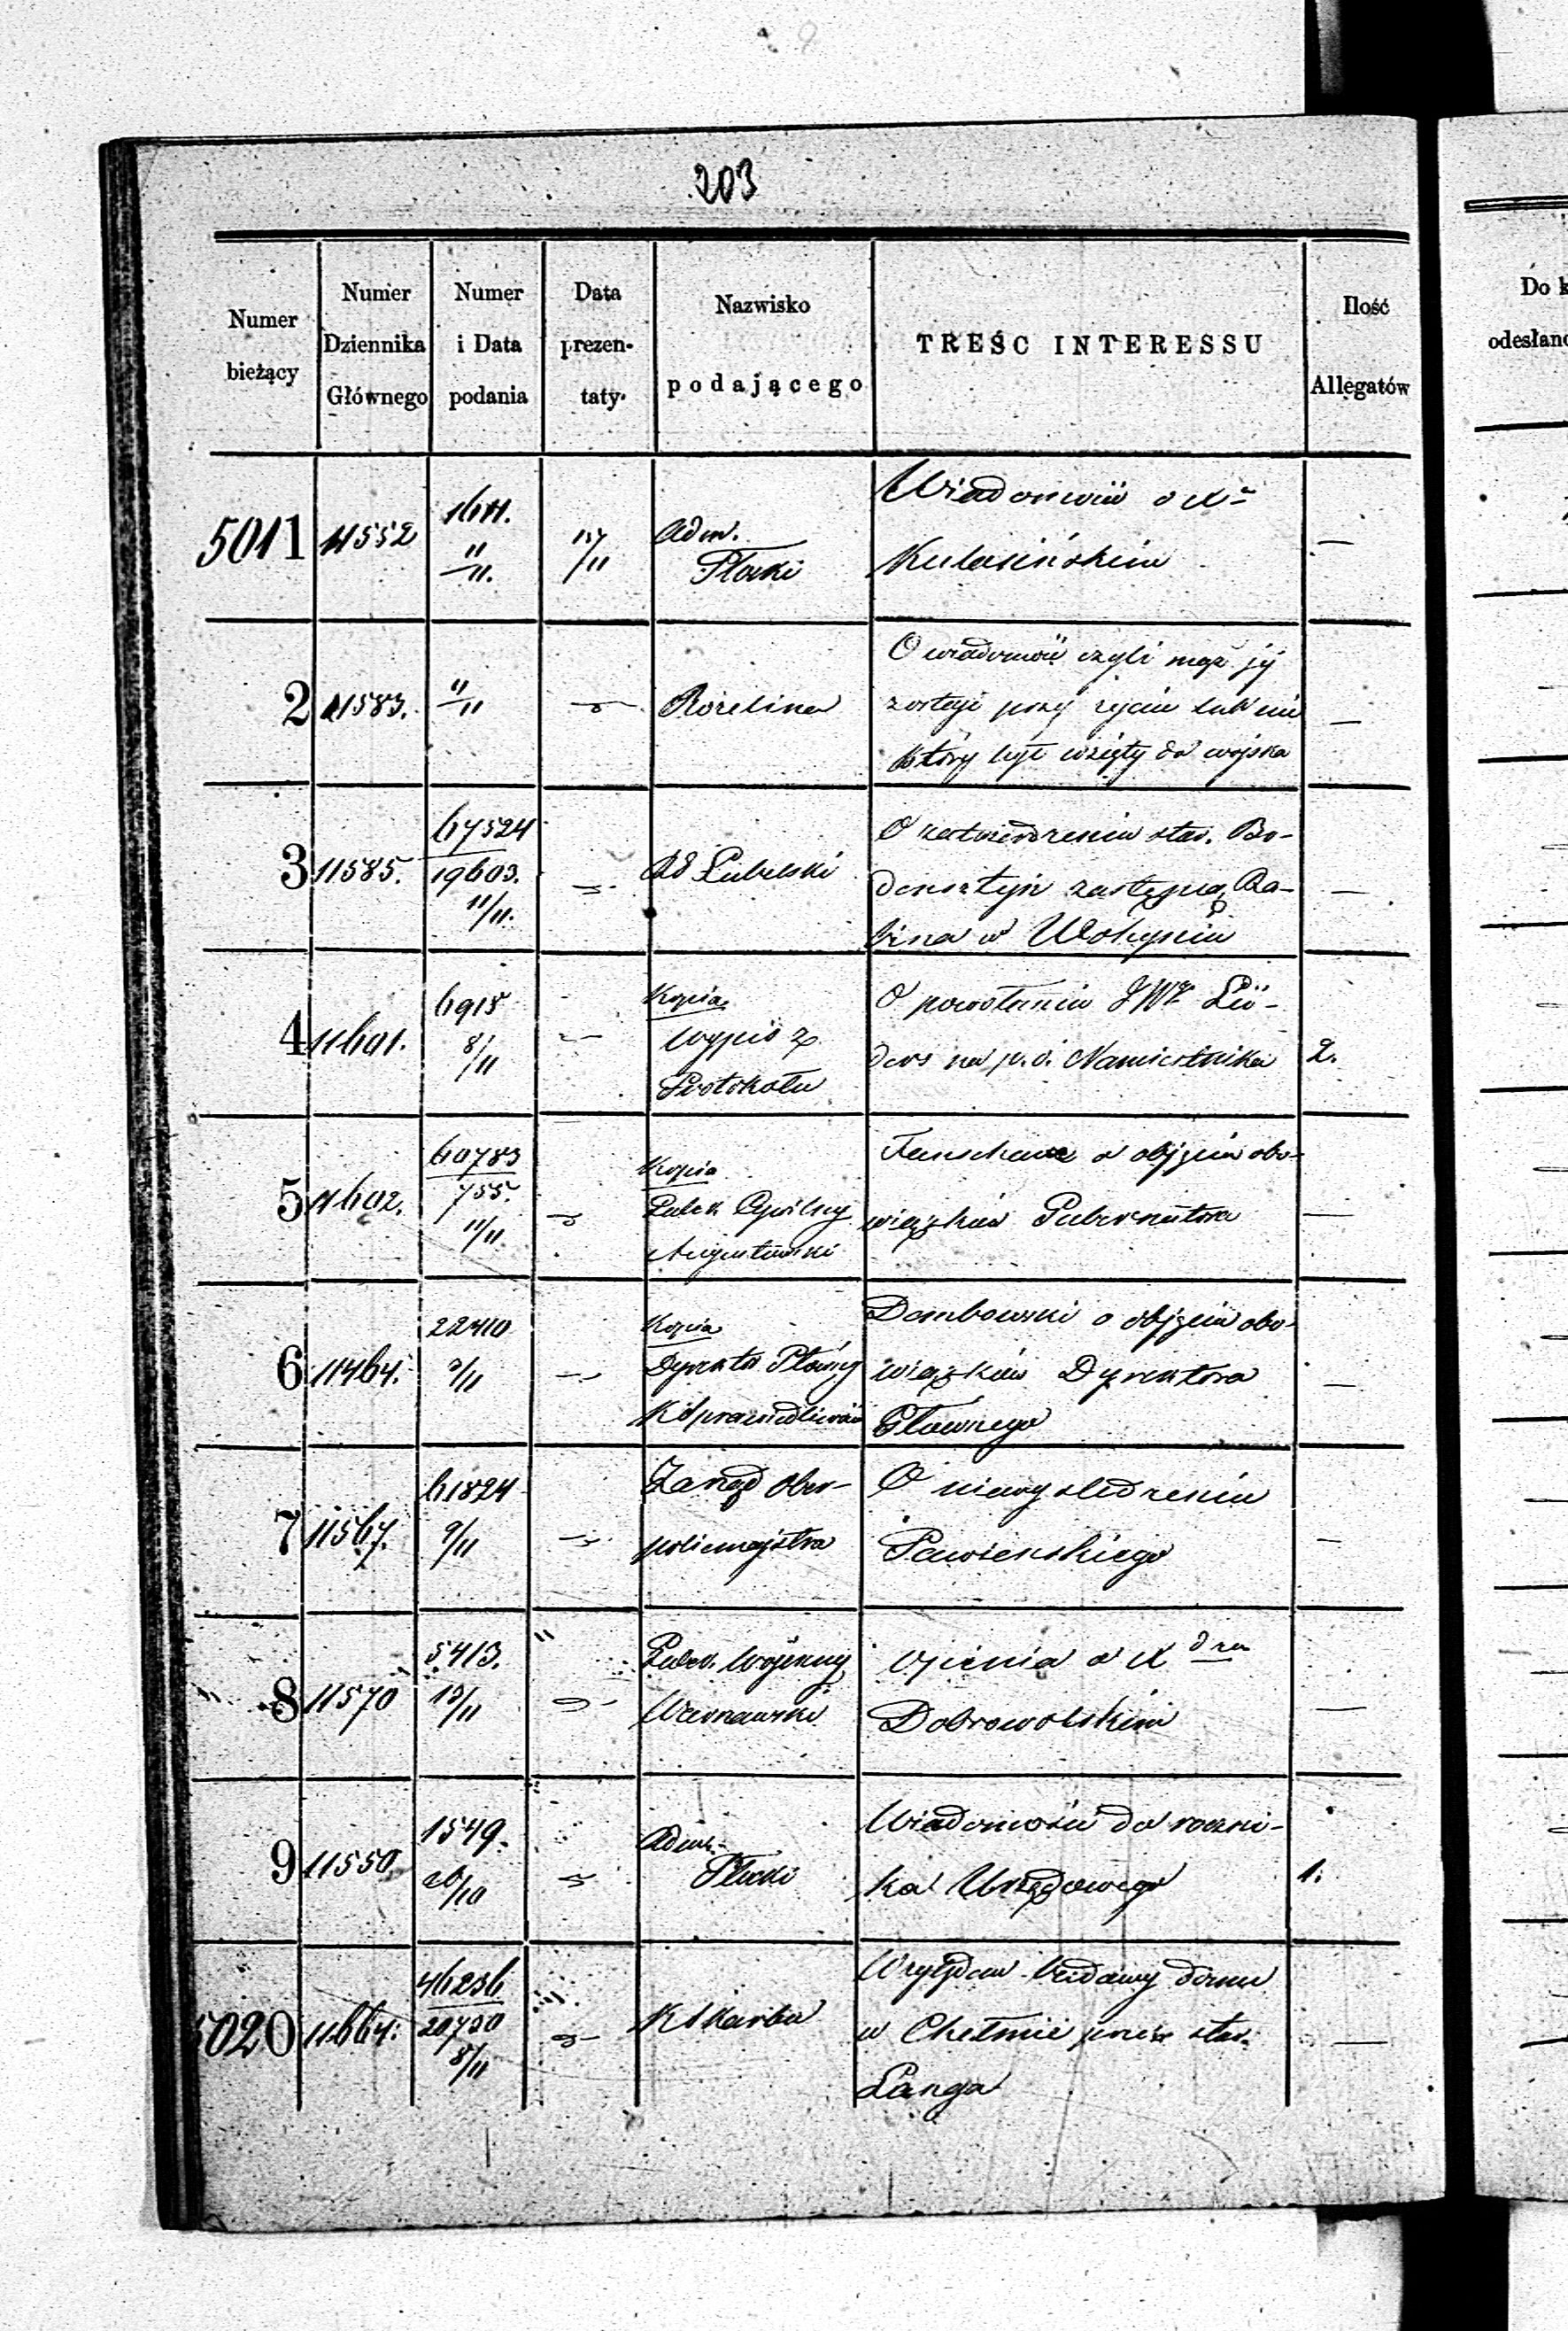 203
Numer bieżący
Numer Dziennika Głównego
Numer i Data podania
Data prezen- taty.
Nazwisko podającego
TREŚC INTERESSU
Ilość Allegatów
Do k
odesłano
5011
11552
1611.
11/11.
13/11
Adm.
Płocki
Wiadomość o X
Kulasińskim
—
2
11583.
11/11
Rozelina
O wiadomość czyli mąż jéj
zostaje przy życiu lub nie
który był wzięty do wojska
—
3
11585.
67524
19603.
11/11.
RG Lubelski
O zatwierdzeniu star. Bo-
densztejn zastępcą Ra-
bina w Wohyniu
—
4
11601.
6915
8/11
Kopia
Wypis z
Protokołu
O powołaniu JW Lü-
ders na p.o. Namiestnika
2.
5
11602.
60783
755.
11/11
Kopia
Cywilny
Augustowski
o objęciu obo-
wiązków Gubernatora
—
6
11464.
22410
2/11
Kopia
Dyrektor Główny
K Sprawiedliwości
Dembowski o objęciu obo-
wiązków Dyrektora
Głównego
—
7
11567.
61824
9/11
Zarząd Ober-
policmajstra
O niewyśledzeniu
Pawieńskiego
—
8
11570
5413.
13/11
Wojenny
Warszawski
Opinia o X
Dobrowolskim
—
9
11550
1549.
26/10
Adm.
Płocki
Wiadomości do roczni-
ka Urzędowego
1.
5020
11664.
46236
20730
8/11
K Skarbu
Względem budowy domu
w Chełmie przez star.
Langa
—